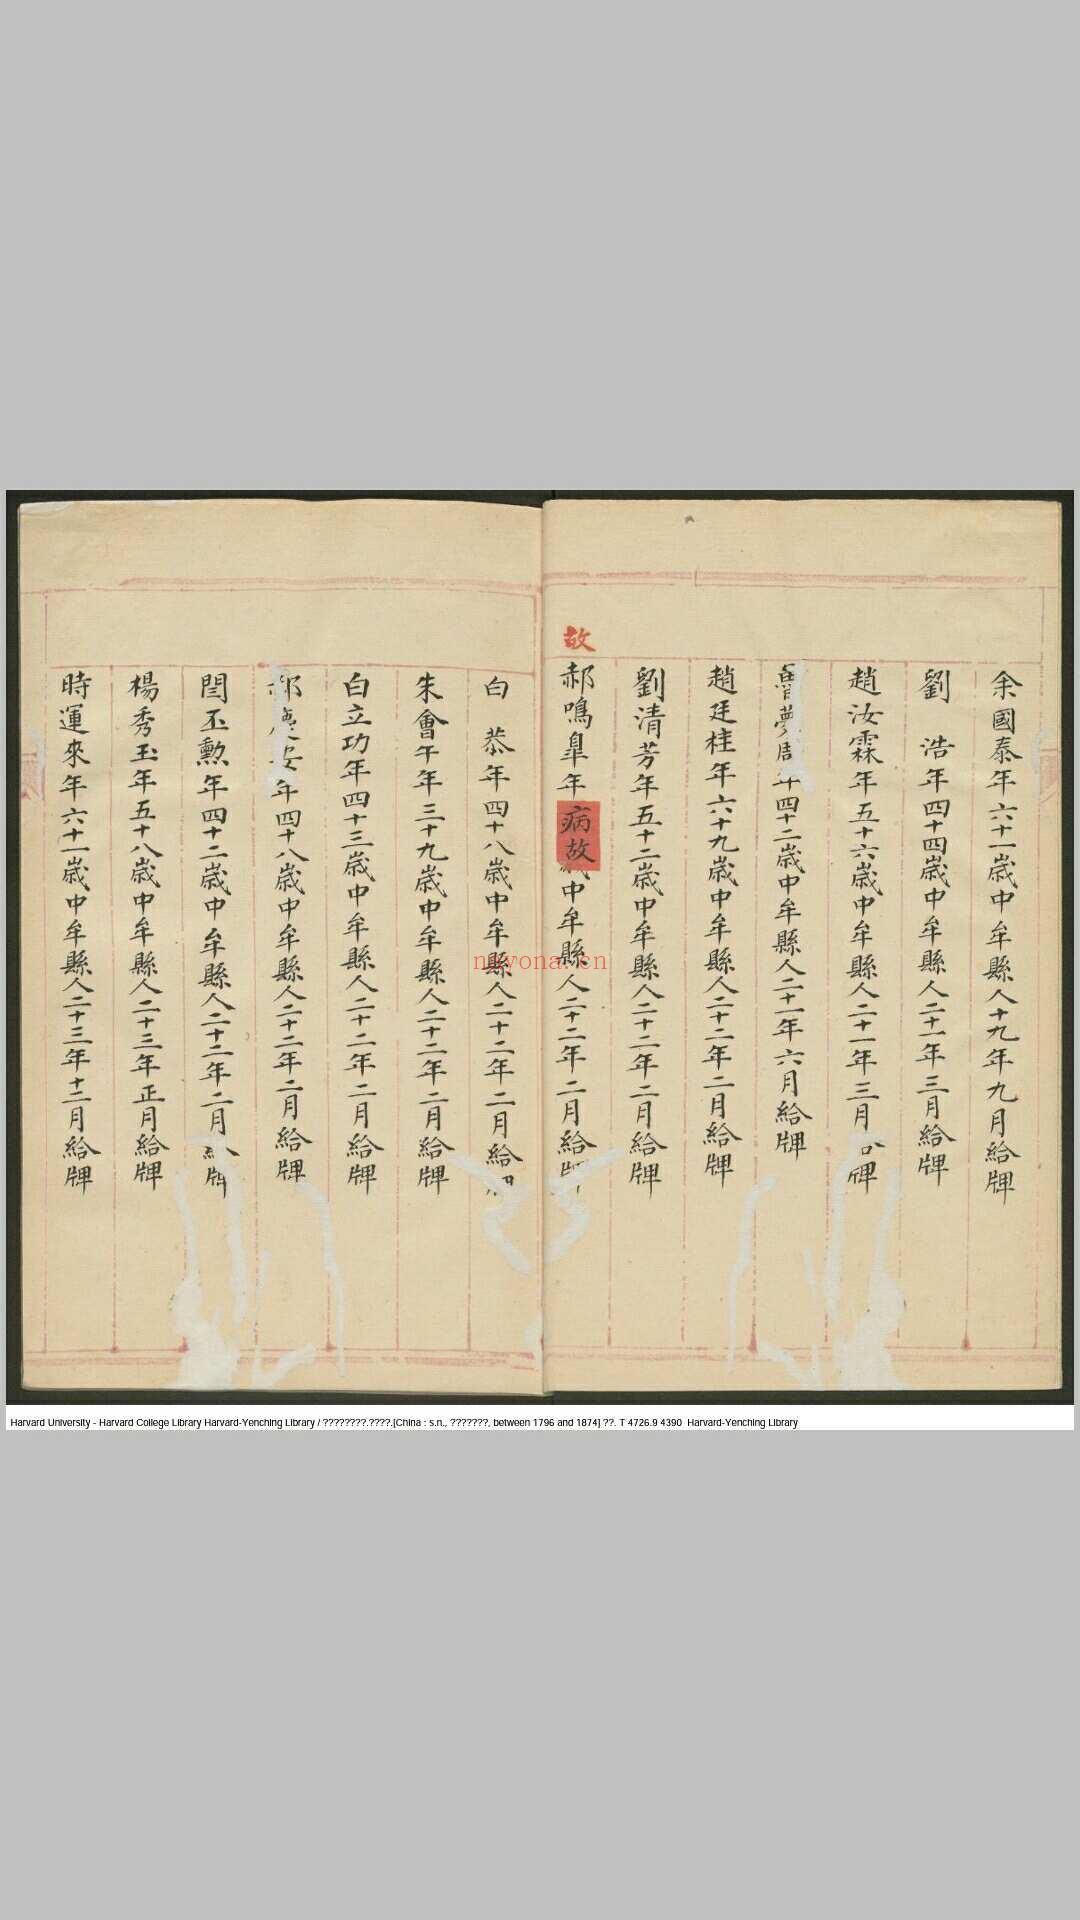 余國泰年六十一歲中牟縣人十九年九月給牌
劉　浩年四十四歲中牟縣人二十一年三月給牌
趙汝霖年五十六歲中牟縣人二十一年三月給牌
夢周年四十二歲中牟縣人二十一年六月給牌
趙廷桂年六十九歲中牟縣人二十二年二月給牌
劉清芳年五十二歲中牟縣人二十二年二月給牌
故
郝鳴臯年病故歲中牟縣人二十二年二月給牌
白　恭年四十八歲中牟縣人二十二年二月給牌
朱會午年三十九歲中牟縣人二十二年二月給牌
白立功年四十三歲中牟縣人二十二年二月給牌
郝安年四十八歲中牟縣人二十二年二月給牌
閆丕勲年四十二歲中牟縣人二十二年二月給牌
楊秀玉年五十八歲中牟縣人二十三年正月給牌
時運來年六十一歲中牟縣人二十三年十二月給牌
nayona.cn
Harvard University - Harvard College Library Harvard-Yenching Library / ????????.????.[China : s.n., ???????, between 1796 and 1874] ??. T 4726.9 4390 Harvard-Yenching Library